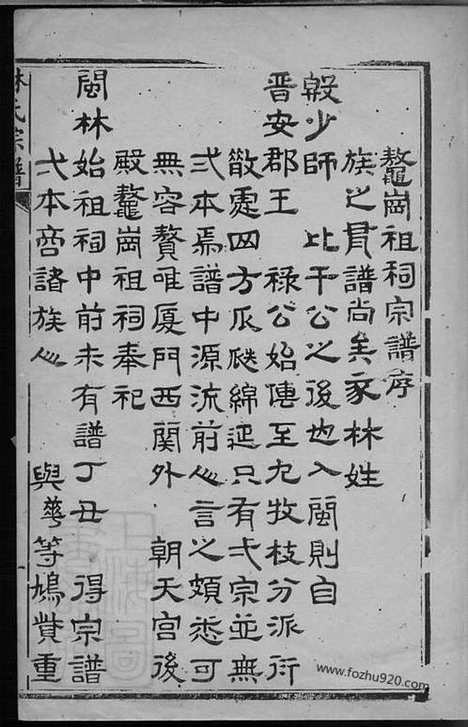 鼇崗祖祠宗譜序
族之有譜尚矣家林姓
殷少師 比干公之後也入閩則自
晉安郡王 祿公始傳至九牧枝分派衍
散處四方瓜瓞綿延只有弍宗並無
弍本焉譜中源流前人言之頗悉可
無容贅唯厦門西関外 朝天宮後
殿鼇崗祖祠奉祀
閩林始祖祠中前未有譜丁丑 得宗譜
弍本啇諸族人 與華等鳩貲重
林氏宗譜
www.fozhu920.com